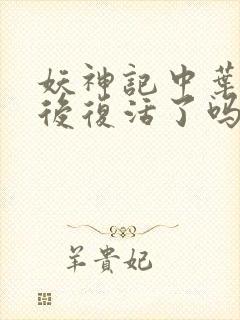 妖神記中葉
後復活了嗎
羊貴妃